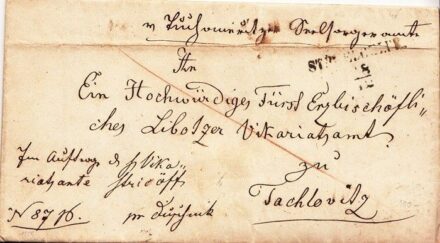 v Tuchomeritzer Seelsorgeramte
An
Ein Hochwürdiges Fürst Erzbischöfli-
ches Libotzer Vikariatsamt
zu
Tachlovitz
Im Auftrage d Vika-
riatsamte
N 876.
pr Duschnik